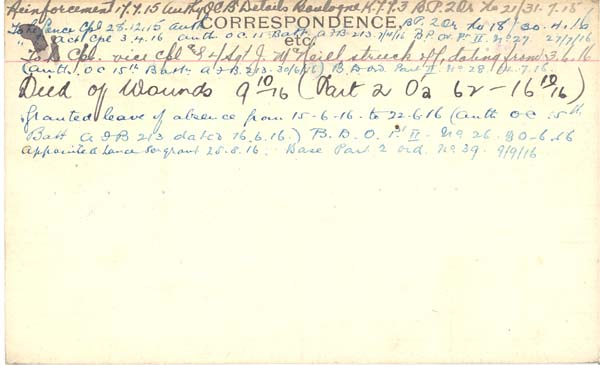 Reinforcement 17.7.15 Auth OCB Details Boulogne K.773 B.P.2Or No 21/31.7.15
CORRESPONDENCE,
To be Lance Cpl 28.12.15 Auth BP 2Or No 18 30.4.16
" " Act Cpl 3.4.16 auth OC 15 Batt. A & B 213 B.P. Or Pt II No 27 27/7/16
etc.
To be Cpl. vice Cpl & A/Sgt J. McNeill struck off, dating from 3.6.16
(auth. OC 15th Batt. A & B. 213. 30/6/16) B. D Ord Part II No 28
Died of Wounds 9/10/16 (Part 2 Oa 62 - 16/10/16)
Granted leave of absence from 15-6-16 to 22-6-16 (Auth OC 15th
Batt A & B 213 dated 16.6.16) B.D.O. Pt II No 26 30-6-16
Appointed Lance Sergeant 28.8.16. Base Part 2 ord. No 39. 9/9/16